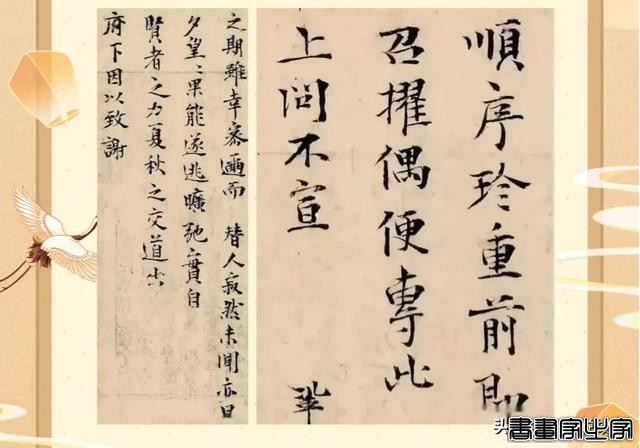 順序珍重前即
召擢偶便專此
上問不宣 鞏
之期雖幸密邇而 替人寂然未聞亦旦
夕望〻果能遂逃曠弛實自
賢者之力夏秋之交道出
府下因以致謝
头 書畫